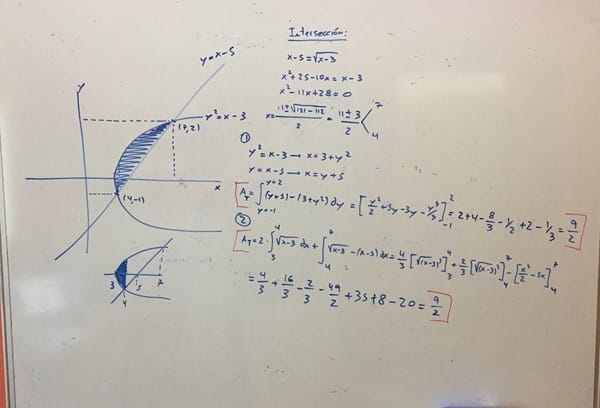 Intersección:
y = x - 5
x - 5 = √x-3
x² + 25 - 10x = x - 3
x² - 11x + 28 = 0
x = 11 ± √121 - 112 / 2 = 11 ± 3 / 2 < 7 4
y
y² = x - 3
(7,2)
x
(4,-1)
①
y² = x - 3 → x = 3 + y²
y = x - 5 → x = y + 5
A_T = ∫_{y=-1}^{y=2} (y+5) - (3+y²) dy = [y²/2 + 5y - 3y - y³/3]_{-1}^{2} = 2 + 4 - 8/3 - 1/2 + 2 - 1/3 = 9/2
②
A_T = 2 · ∫_3^4 √x-3 dx + ∫_4^7 √x-3 - (x-5) dx = 4/3 [√(x-3)³]_3^4 + 2/3 [√(x-3)³]_4^7 - [x²/2 - 5x]_4^7
= 4/3 + 16/3 - 2/3 - 49/2 + 35 + 8 - 20 = 9/2
3 4 5 7